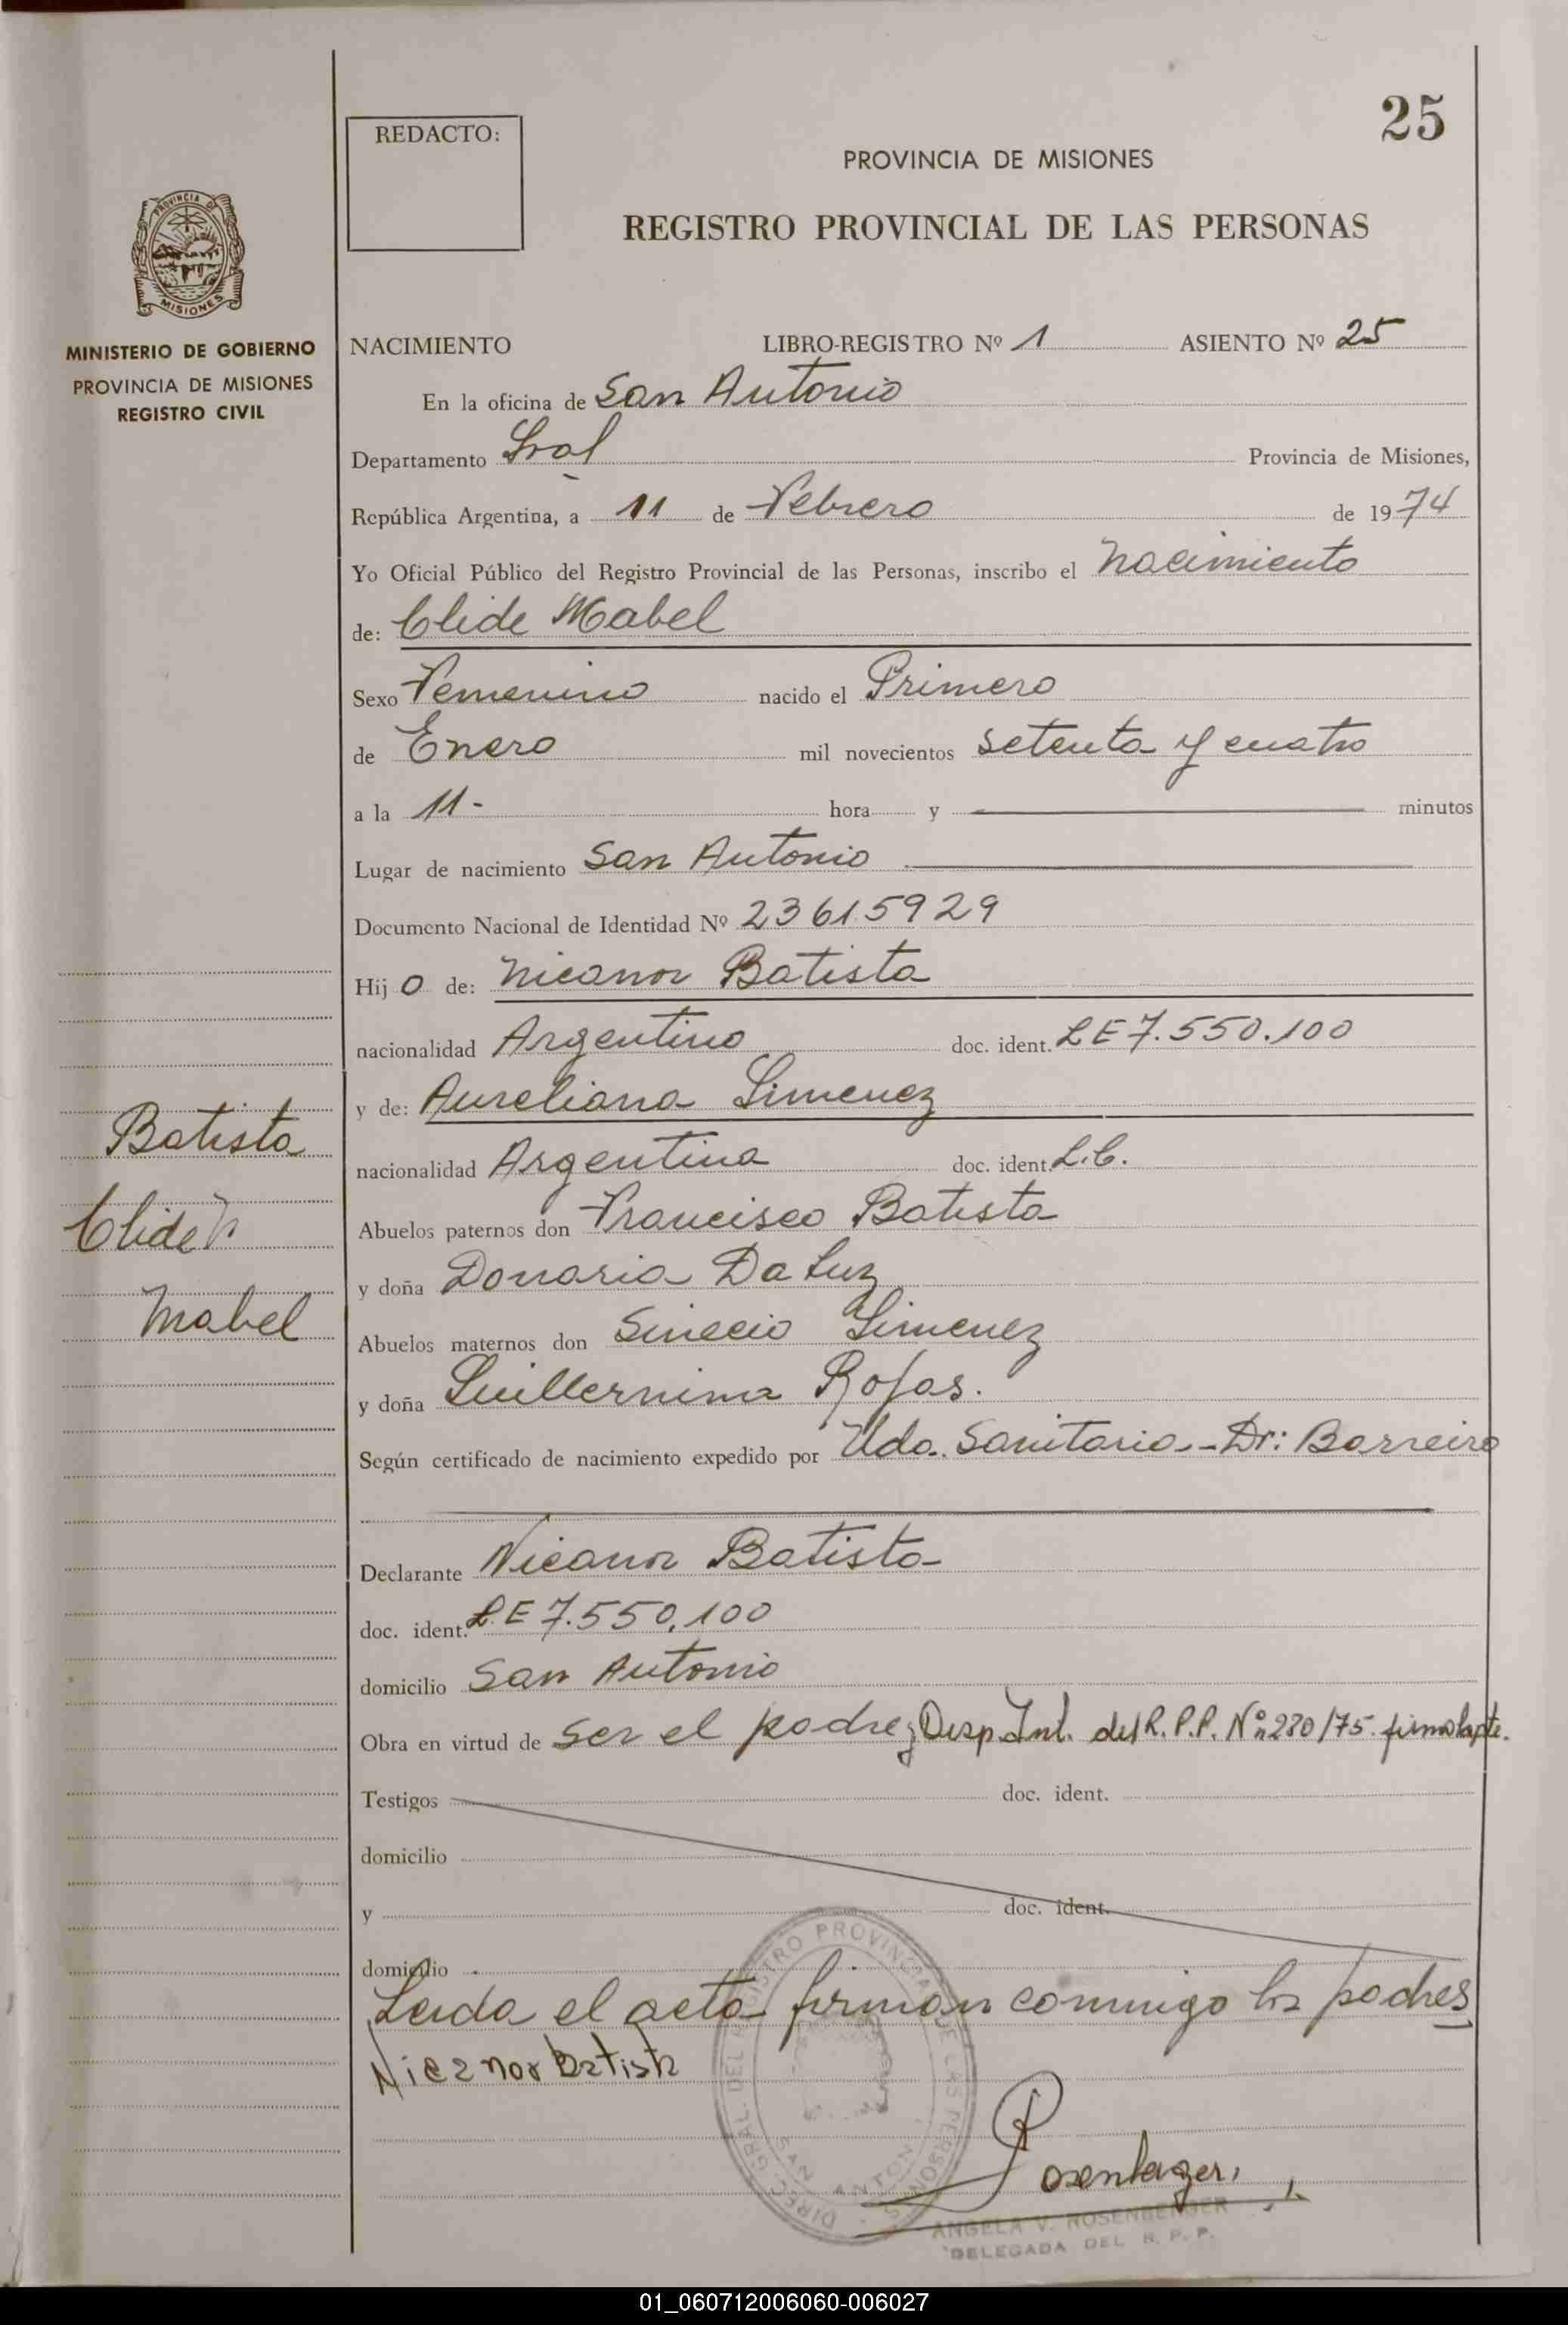 25
REDACTO:
PROVINCIA DE MISIONES
REGISTRO PROVINCIAL DE LAS PERSONAS
PROVINCIA DE
MISIONES
MINISTERIO DE GOBIERNO
PROVINCIA DE MISIONES
REGISTRO CIVIL
NACIMIENTO LIBRO-REGISTRO Nº 1 ASIENTO Nº 25
En la oficina de San Antonio
Departamento Gral Provincia de Misiones,
República Argentina, a 11 de Febrero de 1974
Yo Oficial Público del Registro Provincial de las Personas, inscribo el Nacimiento
de: Clide Mabel
Sexo Femenino nacido el Primero
de Enero mil novecientos setenta y cuatro
a la 11- hora y minutos
Lugar de nacimiento San Antonio
Documento Nacional de Identidad Nº 23615929
Hij o de: Nicanor Batista
nacionalidad Argentino doc. ident. LE 7.550.100
y de: Aureliana Gimenez
nacionalidad Argentina doc. ident. L.C.
Abuelos paternos don Francisco Batista
y doña Donaria Da Luz
Abuelos maternos don Sinecio Gimenez
y doña Guillermina Rojas.
Según certificado de nacimiento expedido por Uda. Sanitaria - Dr: Barreiro
Declarante Nicanor Batista
doc. ident. L.E 7.550.100
domicilio San Antonio
Obra en virtud de ser el padre; Disp. Int. del R.P.P. Nº 280/75 firma la pte.
Testigos doc. ident.
domicilio
y doc. ident.
domicilio
Leida el acta firman conmigo los padres
Nicanor Batista
Rosenberger
ANGELA V. ROSENBERGER
DELEGADA DEL R. P. P.
DIREC. GRAL. DEL REGISTRO PROVINCIAL DE LAS PERSONAS
SAN ANTONIO
Batista
Clide
Mabel
01_060712006060-006027